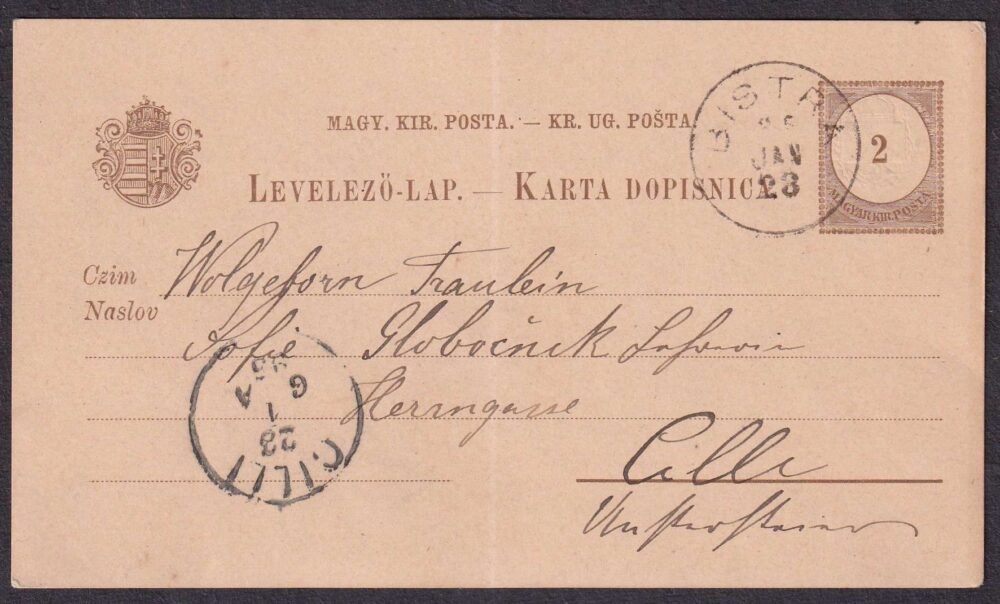 MAGY. KIR. POSTA. — KR. UG. POŠTA.
LEVELEZŐ-LAP. — KARTA DOPISNICA.
BISTRA
JAN
23
2
MAGYAR KIR. POSTA
Czim
Naslov
Wolgeborn Fraulein
Sofie Globočnik Lehrerin
Herrngasse
Cilli
Untersteier
CILLI
23
1
6